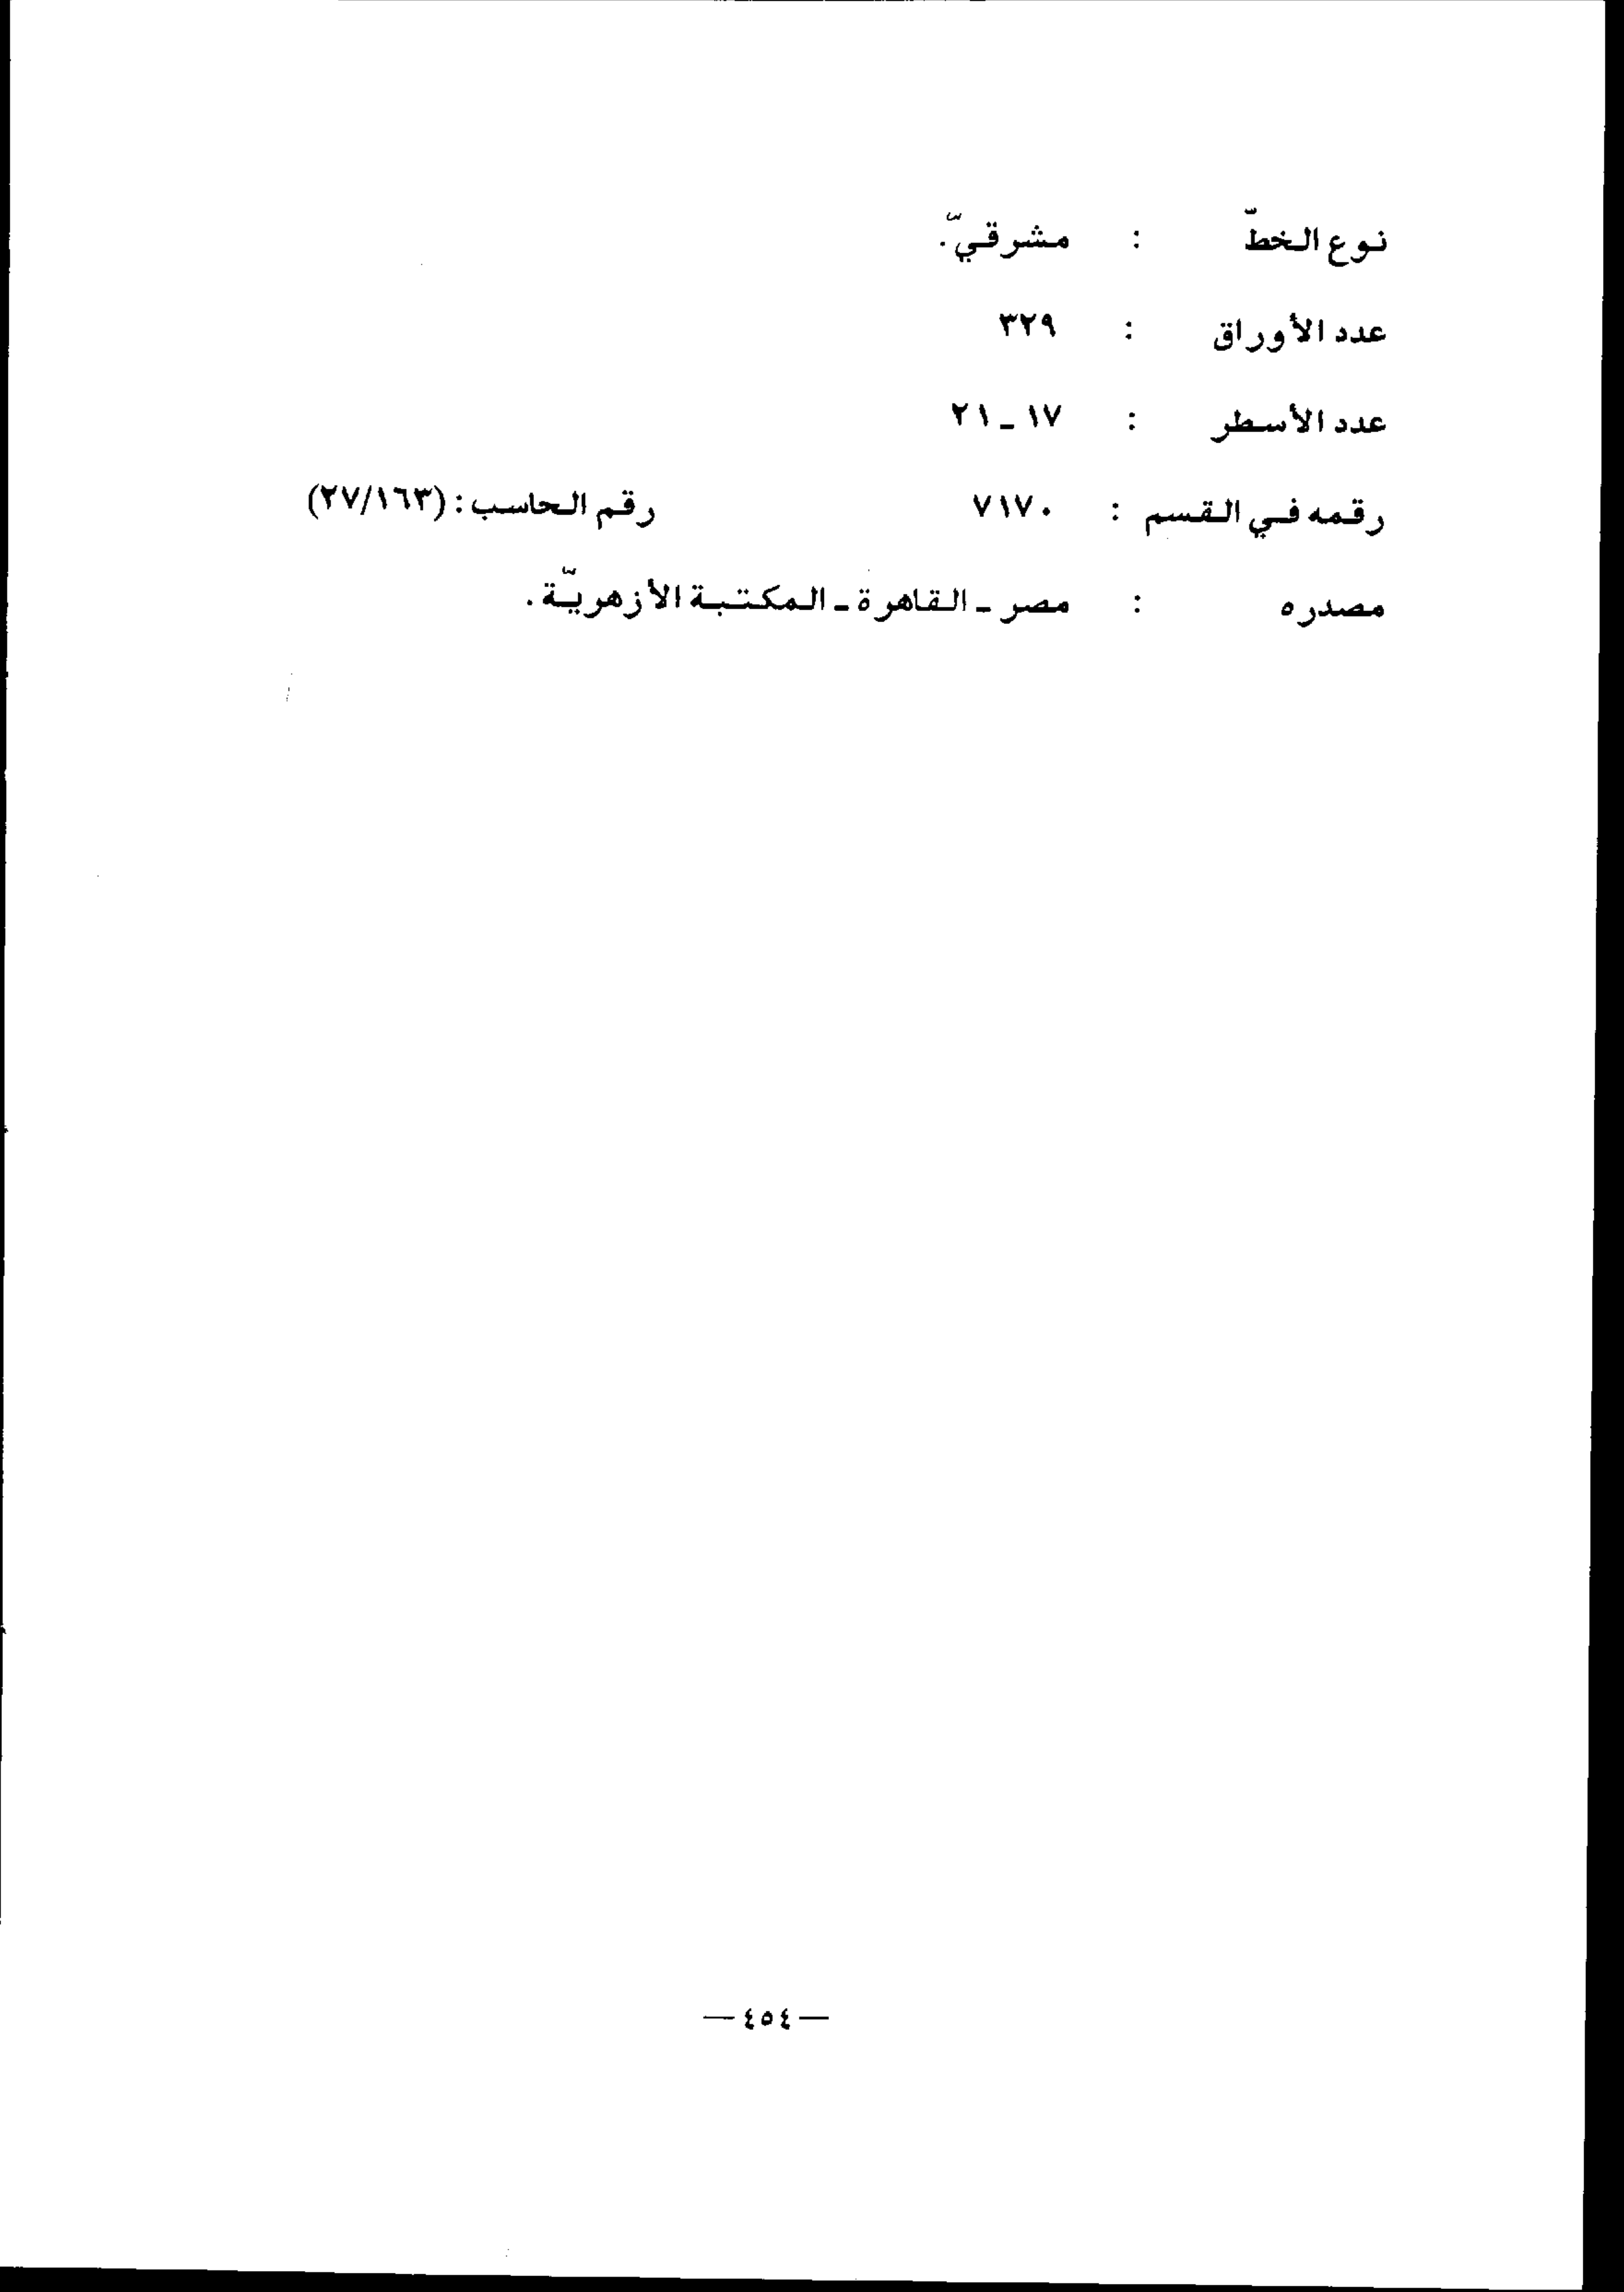 نوع الخطّ : مشرقيّ.
عدد الأوراق : ٣٢٩
عدد الأسطر : ١٧ - ٢١
رقمه في القسم : ٧١٧٠ رقم الحاسب : (٢٧/١٦٣)
مصدره : مصر - القاهرة - المكتبة الأزهريّة.
— ٤٥٤ —